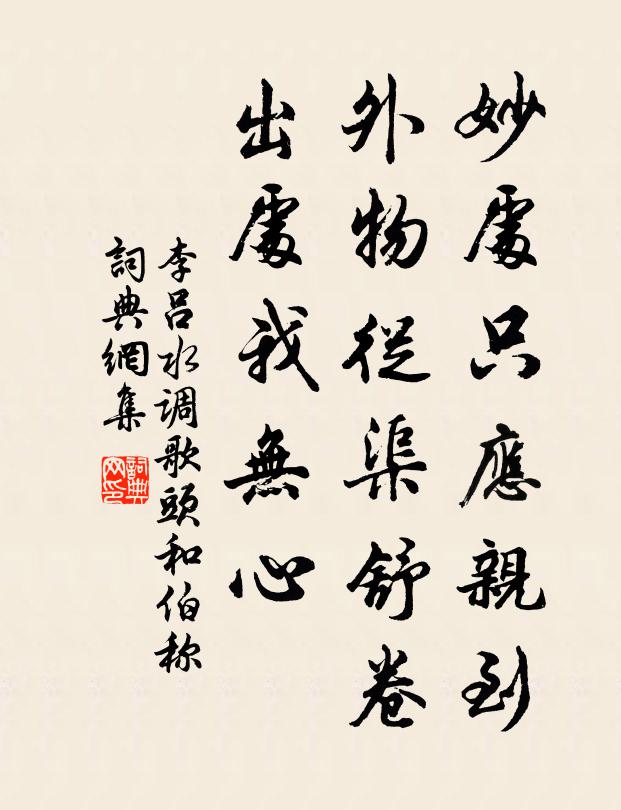 妙處只應親到
外物從渠舒卷
出處我無心
李呂水调歌頭和伯称
詞典網集
詞典网印